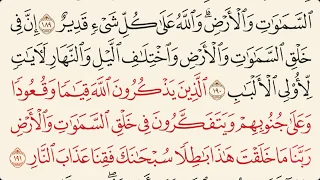 السَّمَٰوَٰتِ وَالْأَرْضِ ۗ وَاللَّهُ عَلَىٰ كُلِّ شَيْءٍ قَدِيرٌ ١٨٩ إِنَّ فِي
خَلْقِ السَّمَٰوَٰتِ وَالْأَرْضِ وَاخْتِلَٰفِ الَّيْلِ وَالنَّهَارِ لَءَايَٰتٍ
لِّأُولِي الْأَلْبَٰبِ ١٩٠ الَّذِينَ يَذْكُرُونَ اللَّهَ قِيَٰمًا وَقُعُودًا
وَعَلَىٰ جُنُوبِهِمْ وَيَتَفَكَّرُونَ فِي خَلْقِ السَّمَٰوَٰتِ وَالْأَرْضِ
رَبَّنَا مَا خَلَقْتَ هَٰذَا بَٰطِلًا سُبْحَٰنَكَ فَقِنَا عَذَابَ النَّارِ ١٩١